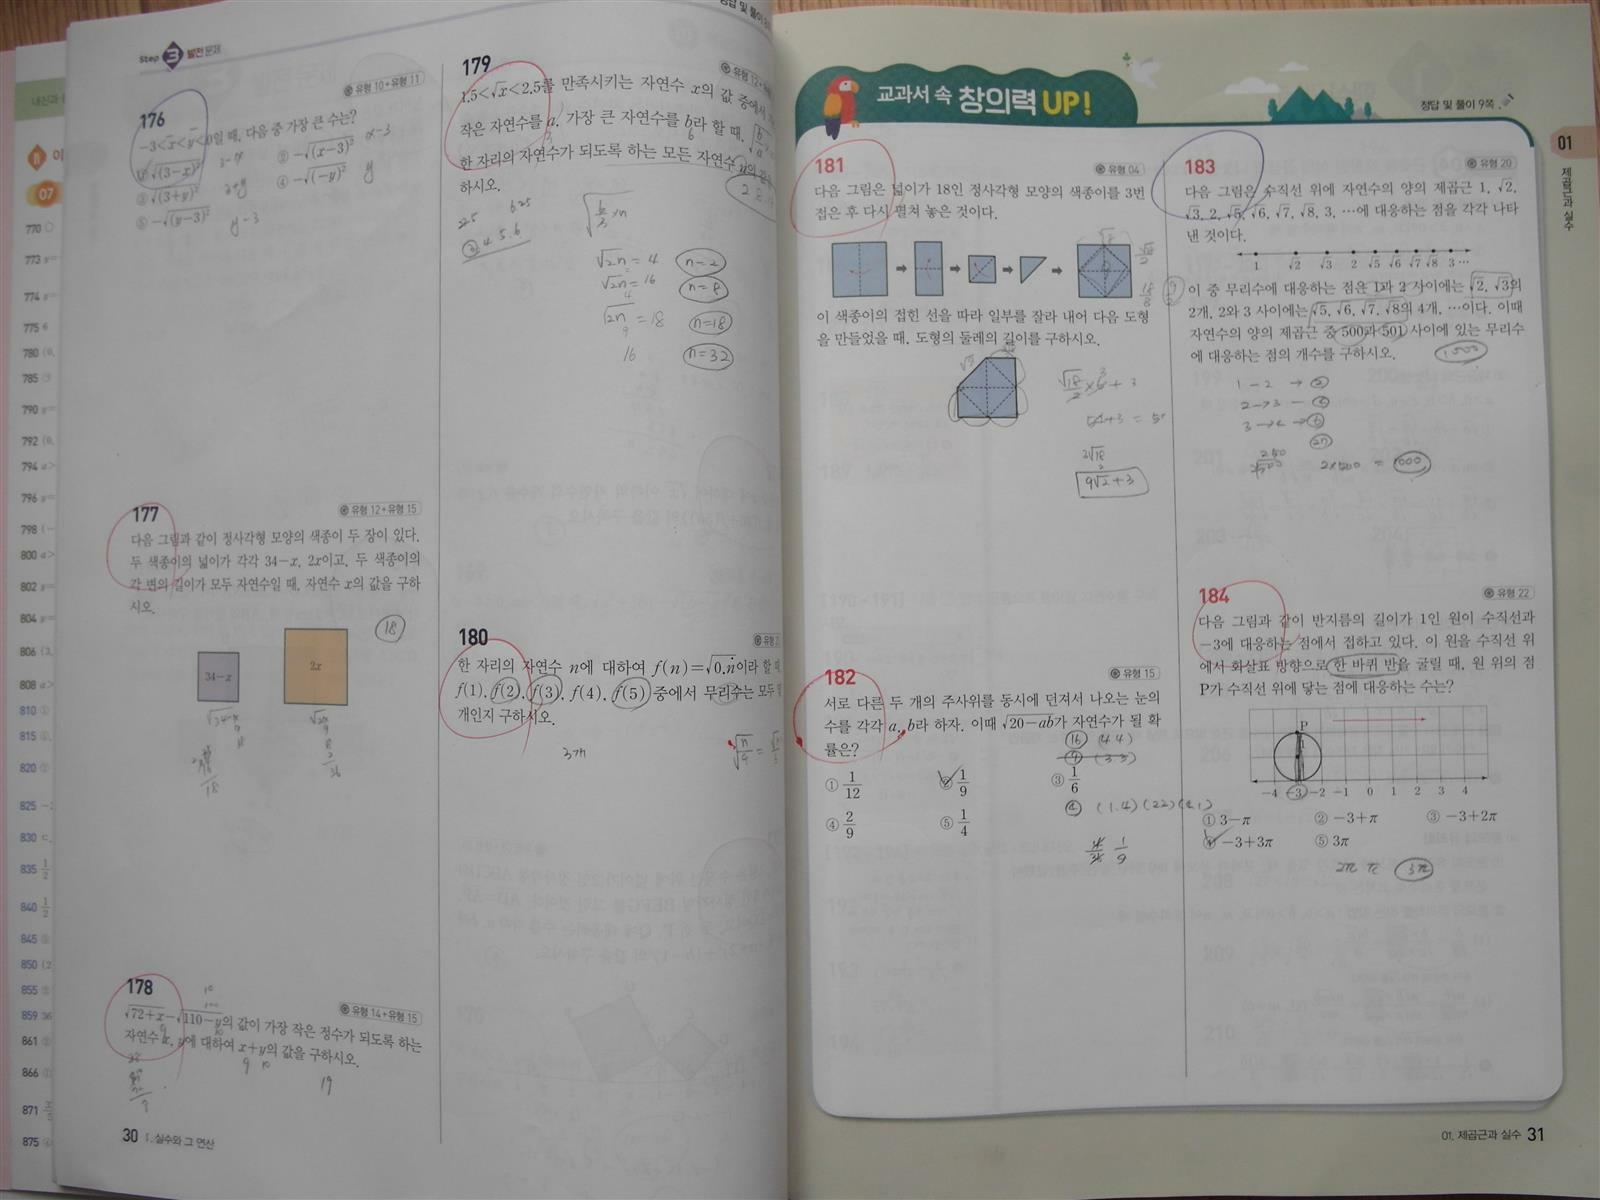 Step 3 발전 문제
유형 10+유형 11
176
-3<x<y<0일 때, 다음 중 가장 큰 수는?
① √(3-x)² ② -√(x-3)² x-3
③ √(3+y)² 3+y ④ -√(-y)² y
⑤ -√(y-3)² y-3
유형 12+유형 15
177
다음 그림과 같이 정사각형 모양의 색종이 두 장이 있다.
두 색종이의 넓이가 각각 34-x, 2x이고, 두 색종이의
각 변의 길이가 모두 자연수일 때, 자연수 x의 값을 구하
시오.
18
34-x
2x
178
유형 14+유형 15
√72+x-√110-y의 값이 가장 작은 정수가 되도록 하는
자연수 x, y에 대하여 x+y의 값을 구하시오.
9 10
19
30 Ⅰ. 실수와 그 연산
179
1.5<√x<2.5를 만족시키는 자연수 x의 값 중에서
작은 자연수를 a, 가장 큰 자연수를 b라 할 때,
한 자리의 자연수가 되도록 하는 모든 자연수
하시오.
√2n = 4 n=2
√2n = 16 n=8
√2n = 18 n=18
16 n=32
180
한 자리의 자연수 n에 대하여 f(n)=√0.ṅ이라 할 때,
f(1), f(2), f(3), f(4), f(5) 중에서 무리수는 모두
개인지 구하시오.
3개
770
773
774
775 6
780
785
790
792
794
796
798
800
802
804
806
808
810
815
820
825
830
835
840
845
850
855
859
861
866
871
875
교과서 속 창의력 UP!
정답 및 풀이 9쪽
01
제곱근과 실수
181
유형 04
다음 그림은 넓이가 18인 정사각형 모양의 색종이를 3번
접은 후 다시 펼쳐 놓은 것이다.
이 색종이의 접힌 선을 따라 일부를 잘라 내어 다음 도형
을 만들었을 때, 도형의 둘레의 길이를 구하시오.
9√2+3
182
유형 15
서로 다른 두 개의 주사위를 동시에 던져서 나오는 눈의
수를 각각 a, b라 하자. 이때 √20-ab가 자연수가 될 확
률은?
16 (4 4)
(3 3)
① 1/12 ② 1/9 ③ 1/6
④ 2/9 ⑤ 1/4
4 (1.4) (2 2) (4 1)
1/9
183
유형 20
다음 그림은 수직선 위에 자연수의 양의 제곱근 1, √2,
√3, 2, √5, √6, √7, √8, 3, …에 대응하는 점을 각각 나타
낸 것이다.
1 √2 √3 2 √5 √6 √7 √8 3 …
이 중 무리수에 대응하는 점은 1과 2 사이에는 √2, √3의
2개, 2와 3 사이에는 √5, √6, √7, √8의 4개, …이다. 이때
자연수의 양의 제곱근 중 500과 501 사이에 있는 무리수
에 대응하는 점의 개수를 구하시오.
1000
1-2 → 2
2→3 - 4
3→4 → 6
2n
2×500 = 1000
184
유형 22
다음 그림과 같이 반지름의 길이가 1인 원이 수직선과
-3에 대응하는 점에서 접하고 있다. 이 원을 수직선 위
에서 화살표 방향으로 한 바퀴 반을 굴릴 때, 원 위의 점
P가 수직선 위에 닿는 점에 대응하는 수는?
P
-4 -3 -2 -1 0 1 2 3 4
① 3-π ② -3+π ③ -3+2π
④ -3+3π ⑤ 3π
2π π 3π
01. 제곱근과 실수 31